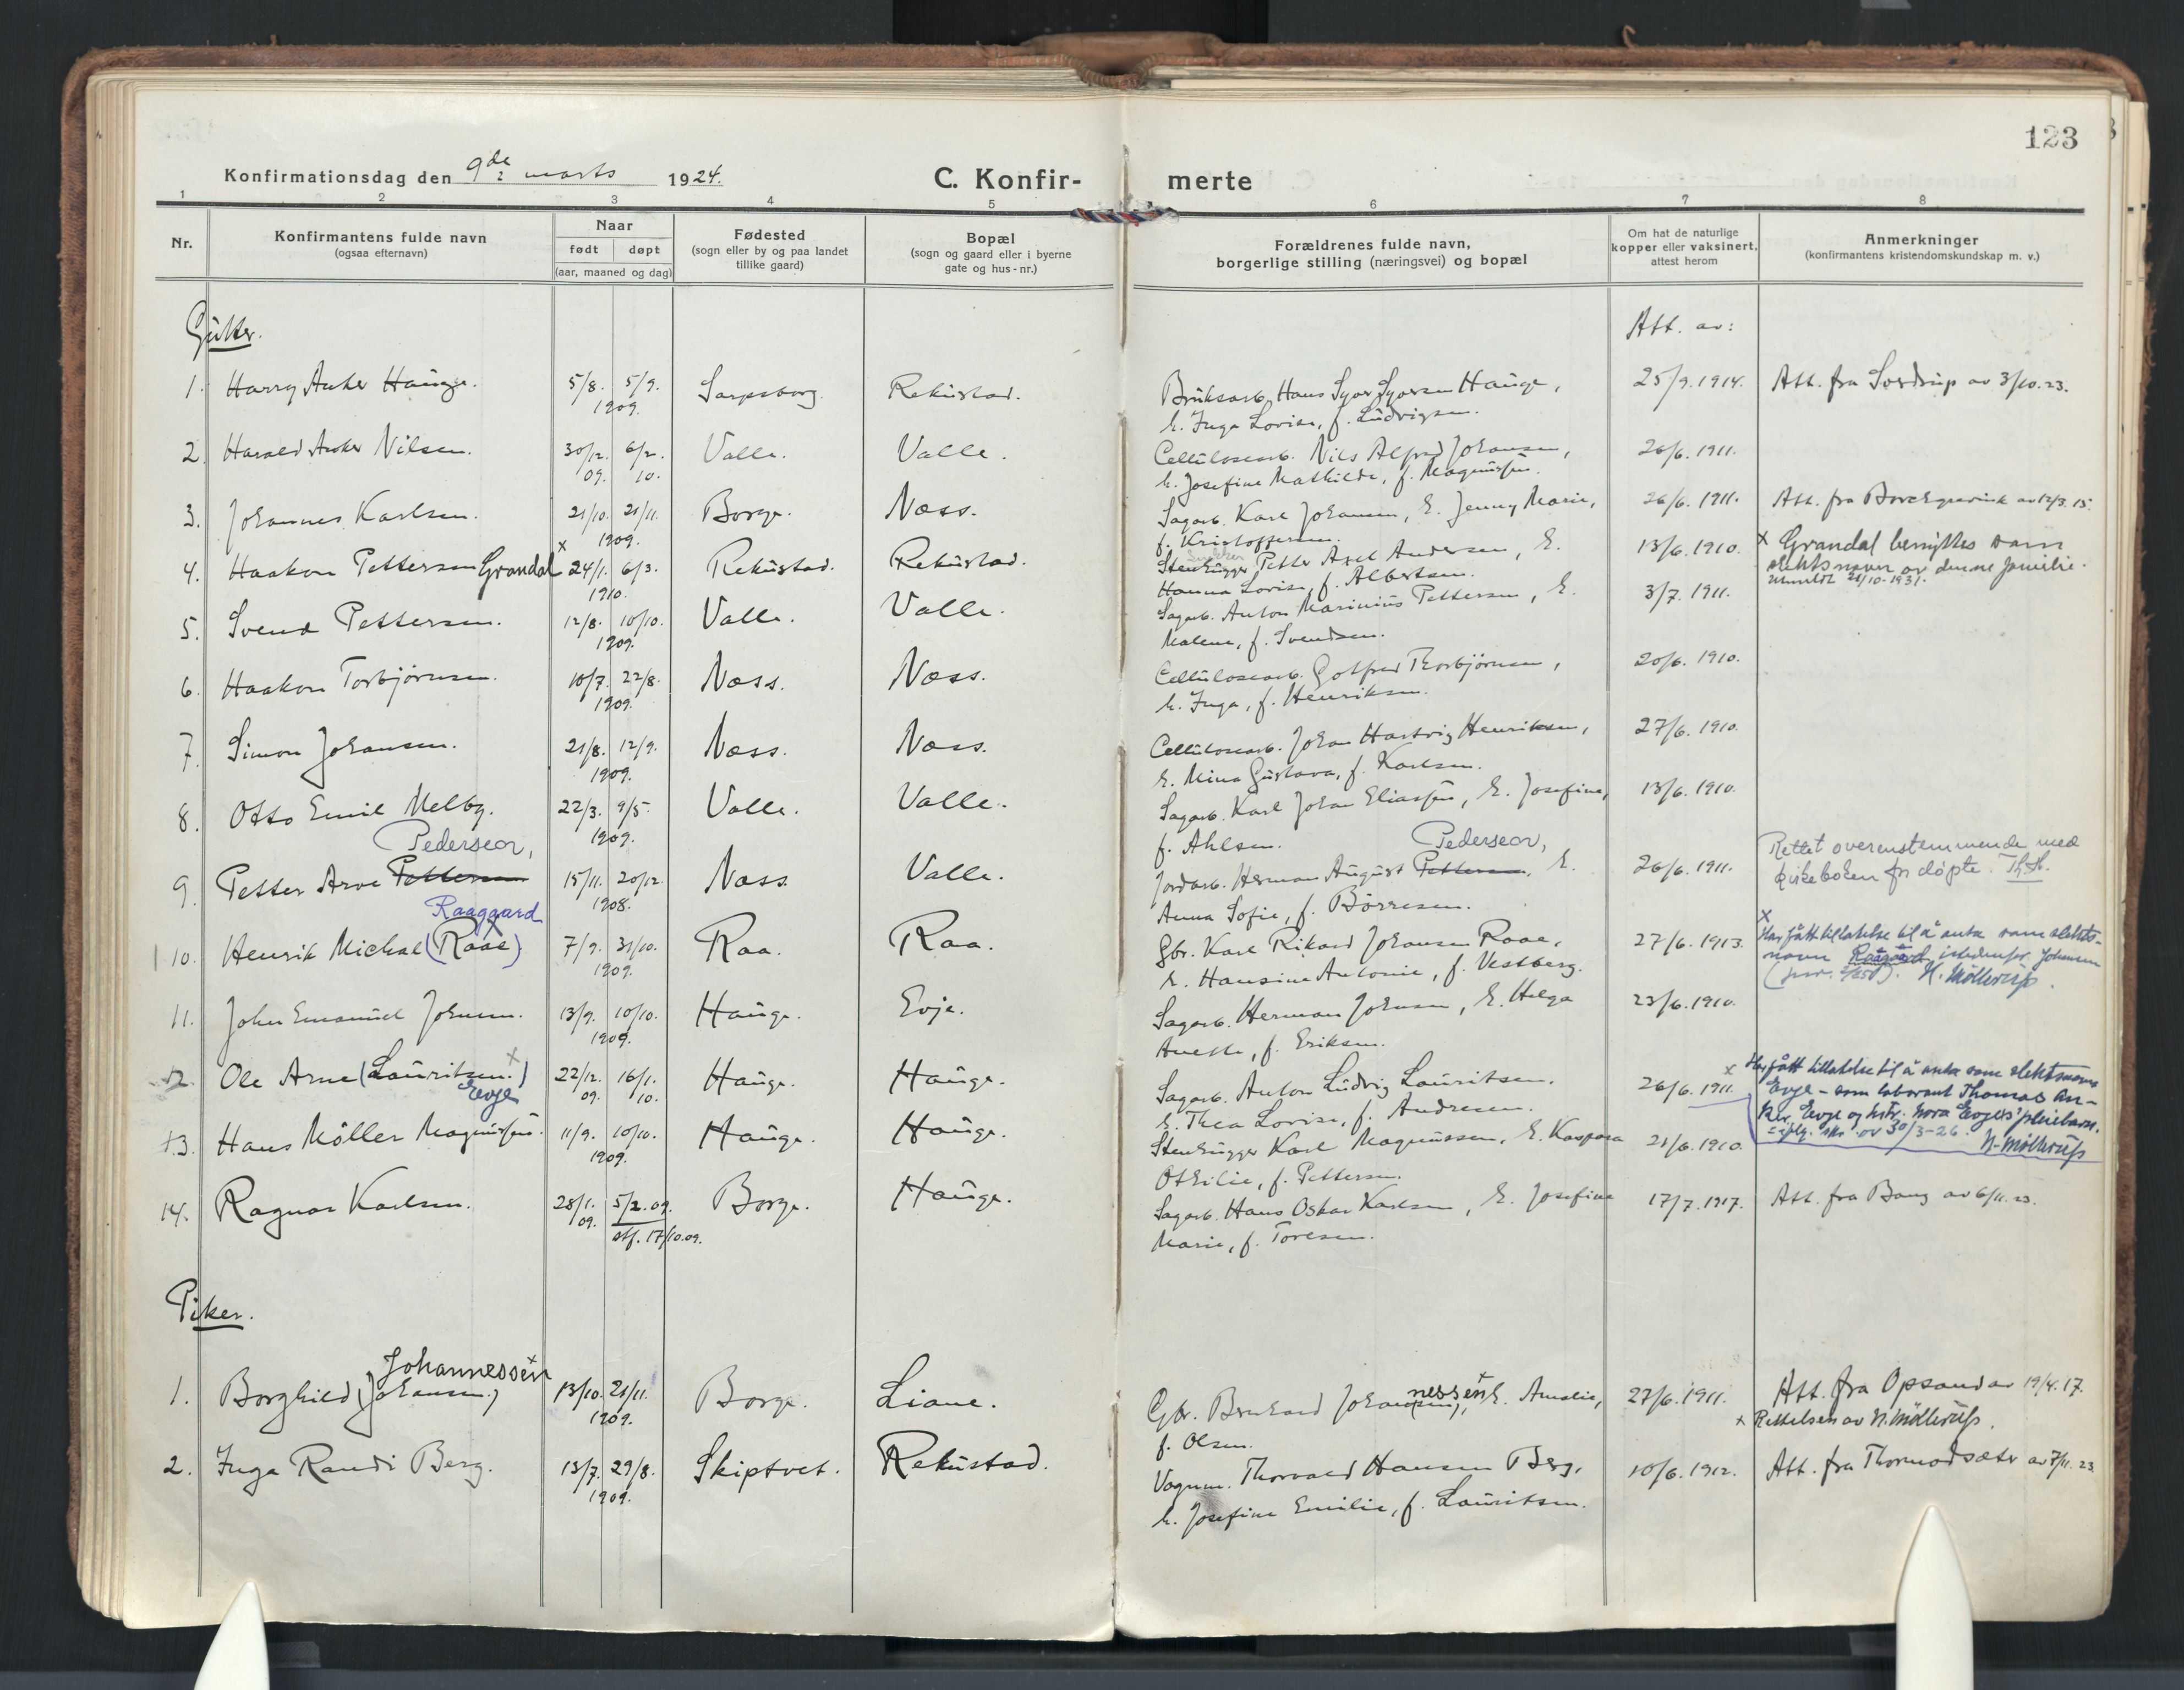 123
Konfirmationsdag den 9de marts 1924.
C. Konfir-
merte
1 2 3 4 5 6 7 8
Nr.
Konfirmantens fulde navn
(ogsaa efternavn)
Naar
født døpt
(aar, maaned og dag)
Fødested
(sogn eller by og paa landet
tillike gaard)
Bopæl
(sogn og gaard eller i byerne
gate og hus-nr.)
Forældrenes fulde navn,
borgerlige stilling (næringsvei) og bopæl
Om hat de naturlige
kopper eller vaksinert,
attest herom
Anmerkninger
(konfirmantens kristendomskundskap m. v.)
Gutter.
Att. av:
1. Harry Anker Hauge. 5/8. 5/9. Sarpsborg. Rekustad. Bruksarb. Hans Hauge, 25/9. 1914. Att. fra av 3/10.23.
1909. h. Inga Lovise, f. Ludvigsen.
2. Harald Anker Nilsen. 30/12. 6/2. Valle. Valle. Cellulosearb. Nils Alfred Johansen, 26/6. 1911.
09. 10. h. Josefine Mathilde, f. Magnussen.
3. Johannes Karlsen. 21/10. 21/11. Borge. Næss. Sagarb. Karl Johansen, h. Jenny Marie, 26/6. 1911. Att. fra av 12/3. 15.
1909. f. Kristoffersen.
4. Haakon Pettersen Grandal x 24/1. 6/3. Rekustad. Rekustad. Stenhugger Petter Axel Andersen, h. 13/6. 1910. x Grandal benyttes som
1910. Hanna Lovise, f. Albertsen. slektsnavn av denne familie.
21/10-1931.
5. Svend Pettersen. 12/8. 10/10. Valle. Valle. Sagarb. Anton Marinius Pettersen, h. 3/7. 1911.
1909. Malene, f. Svendsen.
6. Haakon Torbjörnsen. 10/7. 22/8. Næss. Næss. Cellulosearb. Gotfred Thorbjörnsen, 20/6. 1910.
1909. h. Inga, f. Henriksen.
7. Simon Johansen. 21/8. 12/9. Næss. Næss. Cellulosearb. Johan Hartvig Henriksen, 27/6. 1910.
1909. h. Mina Gustava, f. Karlsen.
8. Otto Emil Melby. 22/3. 9/5. Valle. Valle. Sagarb. Karl Johan Eliassen, h. Josefine, 13/6. 1910.
1909. f. Ahlsen.
Pedersen, Pedersen, Rettet overenstemmende med
9. Petter Arve Pettersen 15/11. 20/12. Næss. Valle. Jordarb. Herman August Pettersen, h. 26/6. 1911. kirkeboken for døpte. Th. H.
1908. Anna Sofie, f. Börresen.
Raagaard x
10. Henrik Michal (Raae) 7/9. 31/10. Raa. Raa. Gbr. Karl Rikard Johansen Raae, 27/6. 1913. Har fått tillatelse til å anta som slekts-
1909. h. Hansine Antonie, f. Vestberg. navn Raagaard istedenfor Johansen
N. Möllerup.
11. John Emanuel Johnsen. 13/9. 10/10. Hauge. Evje. Sagarb. Herman Johnsen, h. Helga 23/6. 1910.
1909. Anette, f. Eriksen.
12. Ole Arne (Lauritsen.) x 22/12. 16/1. Hauge. Hauge. Sagarb. Anton Ludvig Lauritsen. 26/6. 1911. x Har fått tillatelse til å anta som slektsnavn
Evje 09. 10. h. Thea Lovise, f. Andresen. Evje - som laborant Thomas An-
Evje og hstr. Nora Evjes pleiebarn.
skr. av 30/3-26. N. Möllerup
13. Hans Möller Magnussen. 11/9. 10/10. Hauge. Hauge. Stenhugger Karl Magnussen, h. Kaspara 21/6. 1910.
1909. Othilie, f. Pettersen.
14. Ragnar Karlsen. 28/1. 5/2. 09. Borge. Hauge. Sagarb. Hans Oskar Karlsen, h. Josefine 17/7. 1917. Att. fra Bang av 6/11. 23.
09. stf. 17/10.09. Marie, f. Toresen.
Piker.
Johannessen x
1. Borghild (Johansen,) 13/10. 21/11. Borge. Liane. Gbr. Bernhard Johan(sen), nessen x h. Amalie, 27/6. 1911. Att. fra Opsand av 19/4. 17.
1909. f. Olsen. x Rettelsen av N. Möllerup.
2. Inga Randi Berg. 13/7. 29/8. Skiptvet. Rekustad. Vognm. Thorvald Hansen Berg, 10/6. 1912. Att. fra Thormodsæter av 7/11. 23
1909. h. Josefine Emilie, f. Lauritsen.